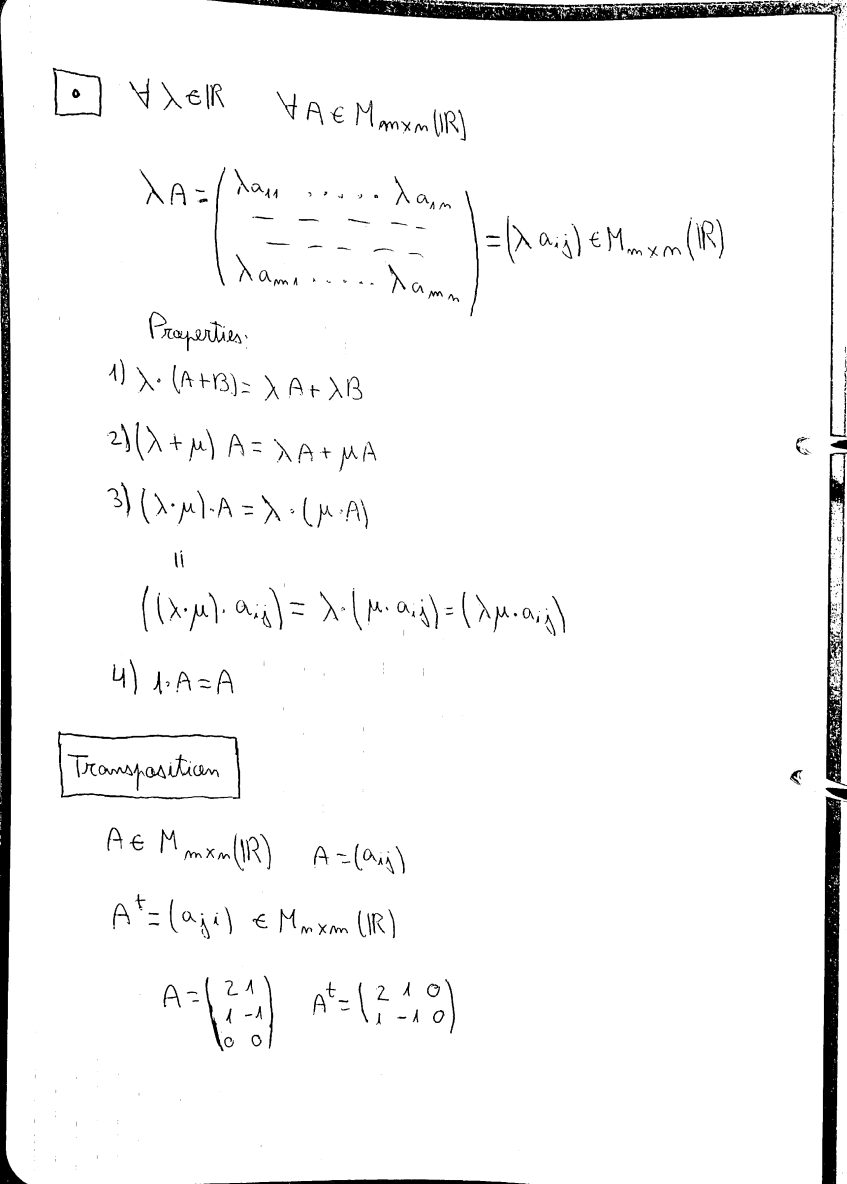 • ∀ λ ∈ ℝ ∀ A ∈ M_{m×n}(ℝ)
λA = ( λa₁₁ ..... λa₁ₙ
— — — —
— — — —
λaₘ₁ ..... λaₘₙ ) = (λ a_{ij}) ∈ M_{m×n}(ℝ)
Properties:
1) λ·(A+B) = λA + λB
2) (λ+μ) A = λA + μA
3) (λ·μ)·A = λ·(μ·A)
॥
((λ·μ)·a_{ij}) = λ·(μ·a_{ij}) = (λμ·a_{ij})
4) 1·A = A
Transposition
A ∈ M_{m×n}(ℝ) A = (a_{ij})
A^t = (a_{ji}) ∈ M_{n×m}(ℝ)
A = ( 2 1 A^t = ( 2 1 0
1 -1 1 -1 0 )
0 0 )